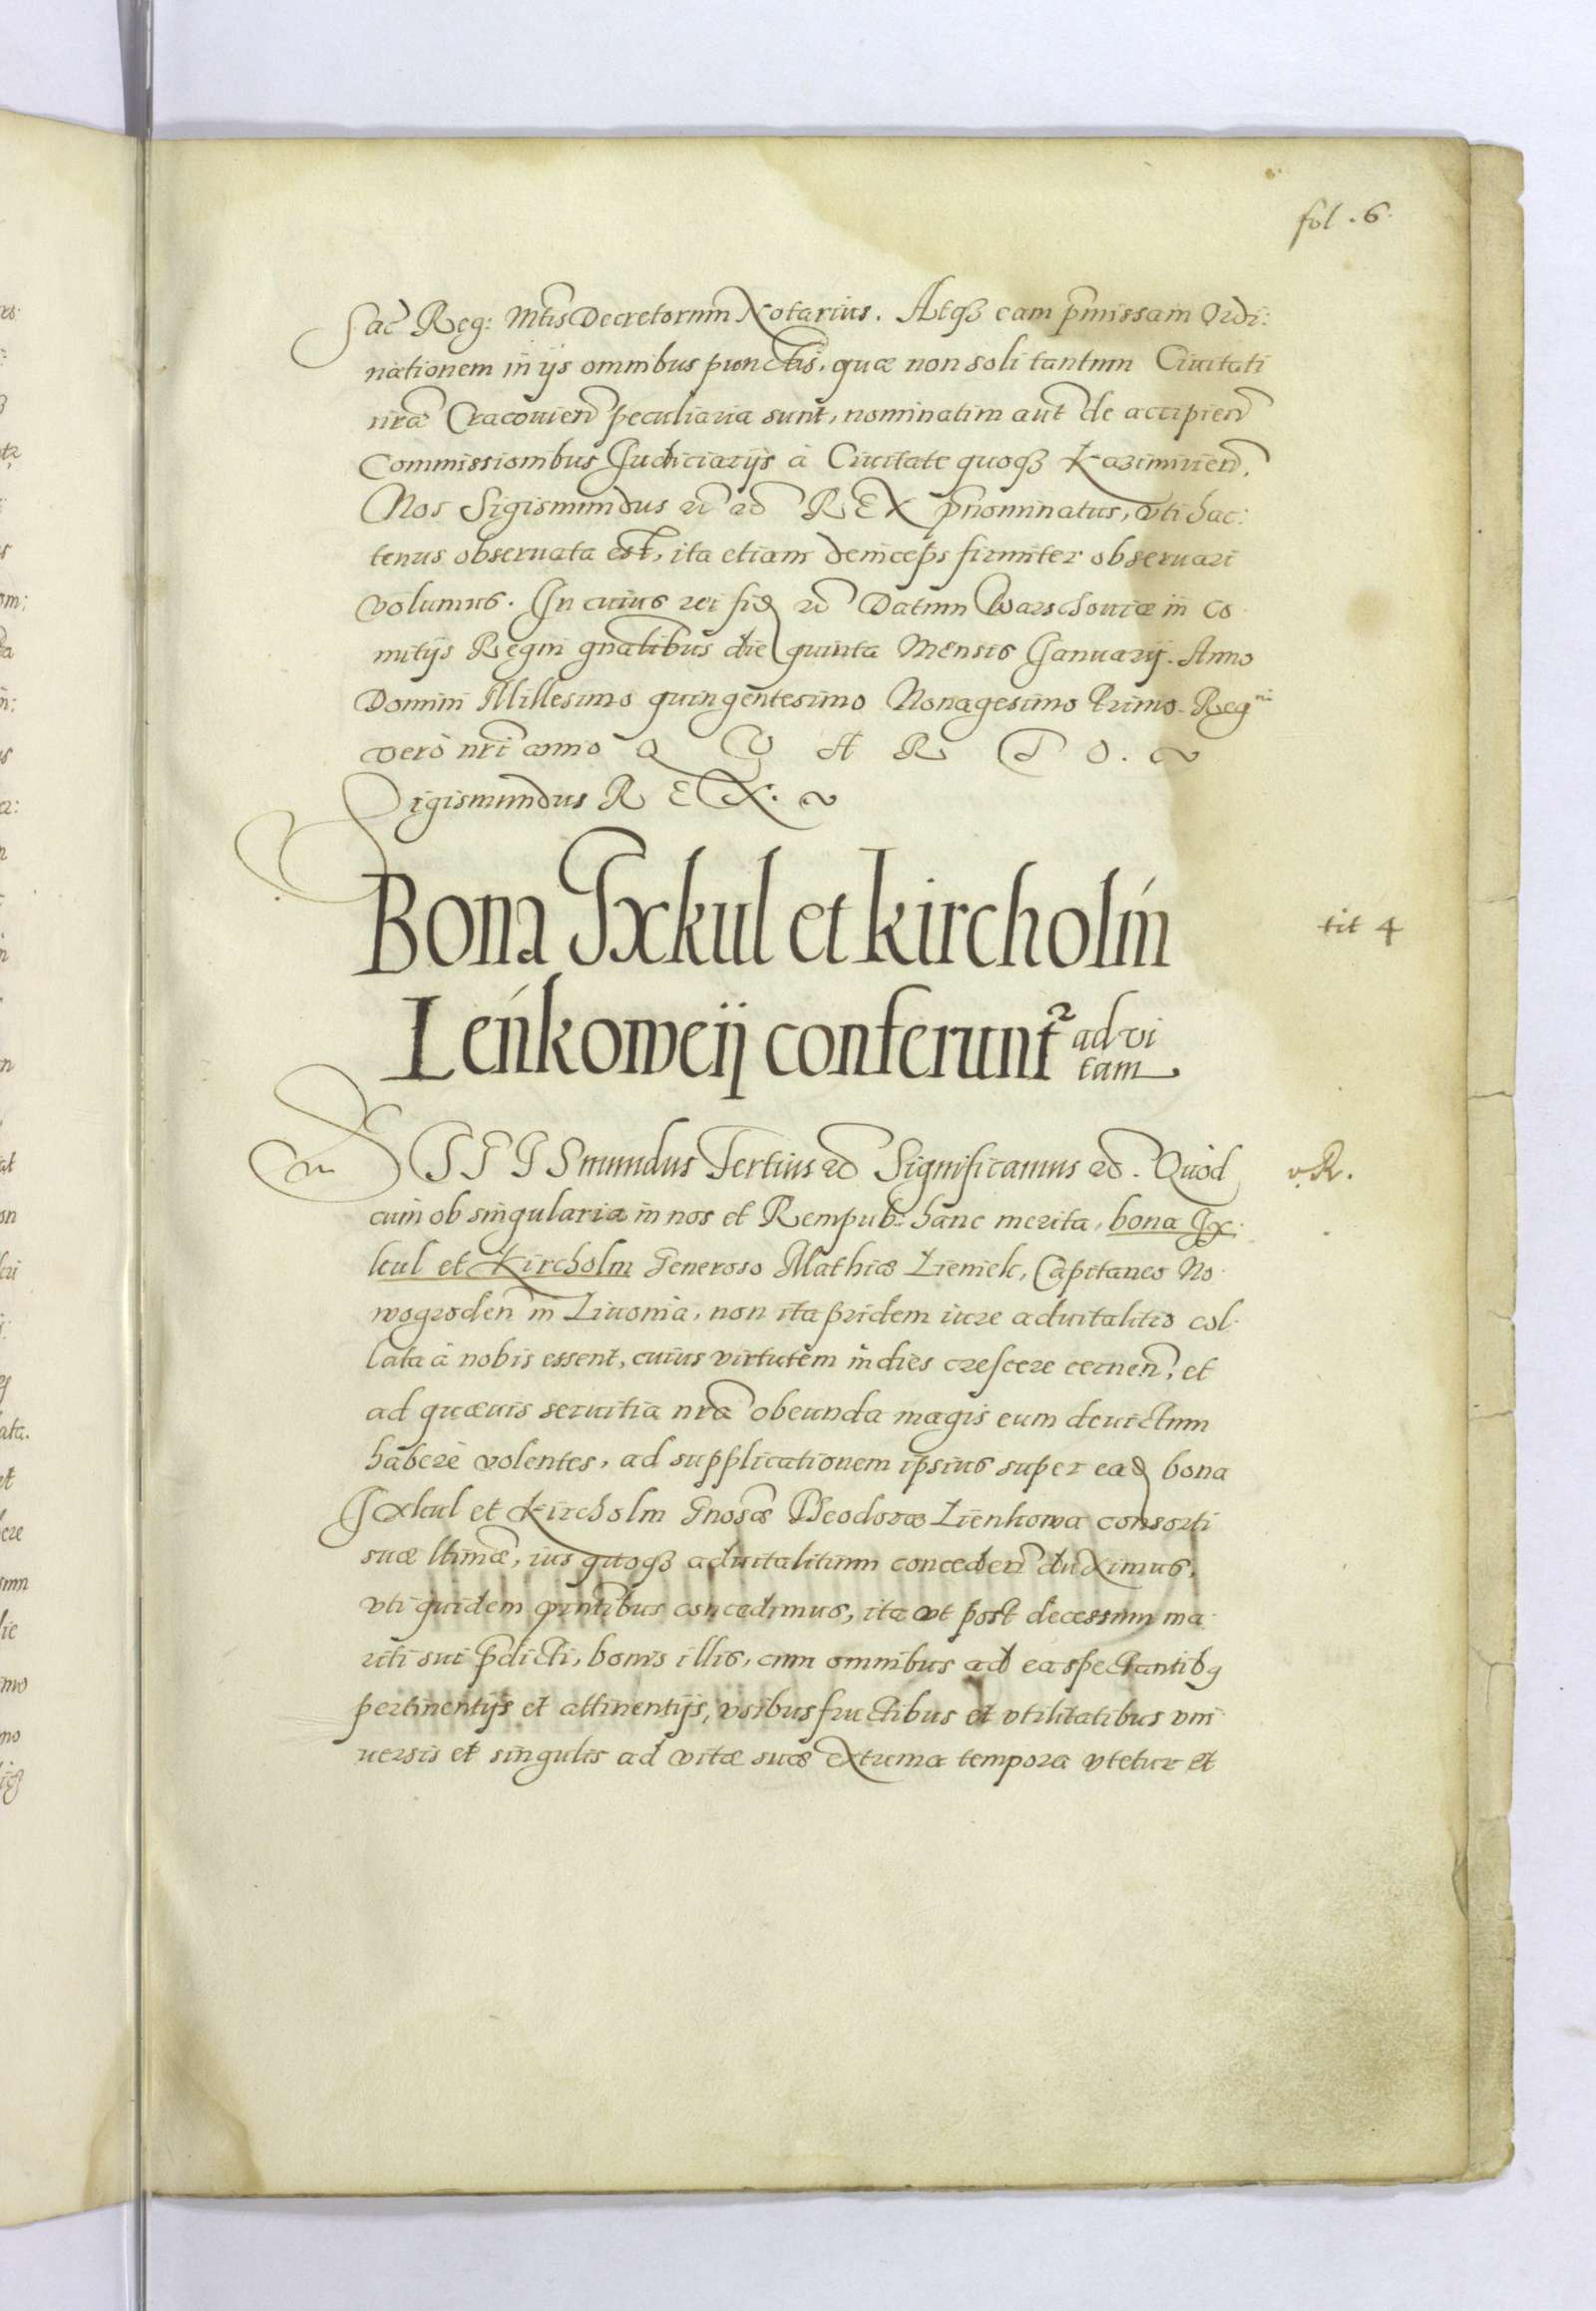 fol. 6.
Sac̃ Reg: Mtis Decretorum Notarius. Atqȝ eam p̃missam Ordi:
nationem in ijs omnibus punctis, quæ non soli tantum Ciuitati
nr̃æ Cracouien̄ peculiaria sunt, nominatim aut̃ de accipien̄
Commissionibus Judiciarijs à Ciuitate quoqȝ Kazimirien̄.
Nos Sigismundus REX p̃nominatus, vti hac:
tenus obseruata est, ita etiam deinceps firmiter obseruari
volumus. In cuius rei fid Datum Warschouiæ in Co
mitijs Regni gnalibus die quinta Mensis Januarij. Anno
Domini Millesimo quingentesimo Nonagesimo Primo. Regni
verò nr̃i anno Q V A R T O.
Sigismundus R E X.
Bona Ixkul et Kircholm
Leńkoweij conferunt² ad vi
tam
tit 4
SIGISmundus Tertius Significamus. Quòd
v. R.
cum ob singularia in nos et Rempub: hanc merita, bona Ix
kul et Kircholm Generoso Mathiæ Lieniek, Capitaneo No
wogroden̄ in Liuonia, non ita pridem iure aduitalitio col
lata à nobis essent, cuius virtutem in dies crescere cernen̄, et
ad quæuis seruitia nr̃a obeunda magis eum deuictum
habere volentes, ad supplicationem ipsius super ead bona
Ixkul et Kircholm Gnosæ Theodoræ Lienkowa consorti
suæ ltimæ, ius quoqȝ aduitalitium conceden̄ duximus,
vti quidem p̃ntibus concedimus, ita vt post decessum ma
riti sui p̃dicti, bonis illis, cum omnibus ad ea spectantibꝯ
pertinentijs et attinentijs, vsibus fructibus et vtilitatibus vni
uersis et singulis ad vitæ suæ extrema tempora vtetur et